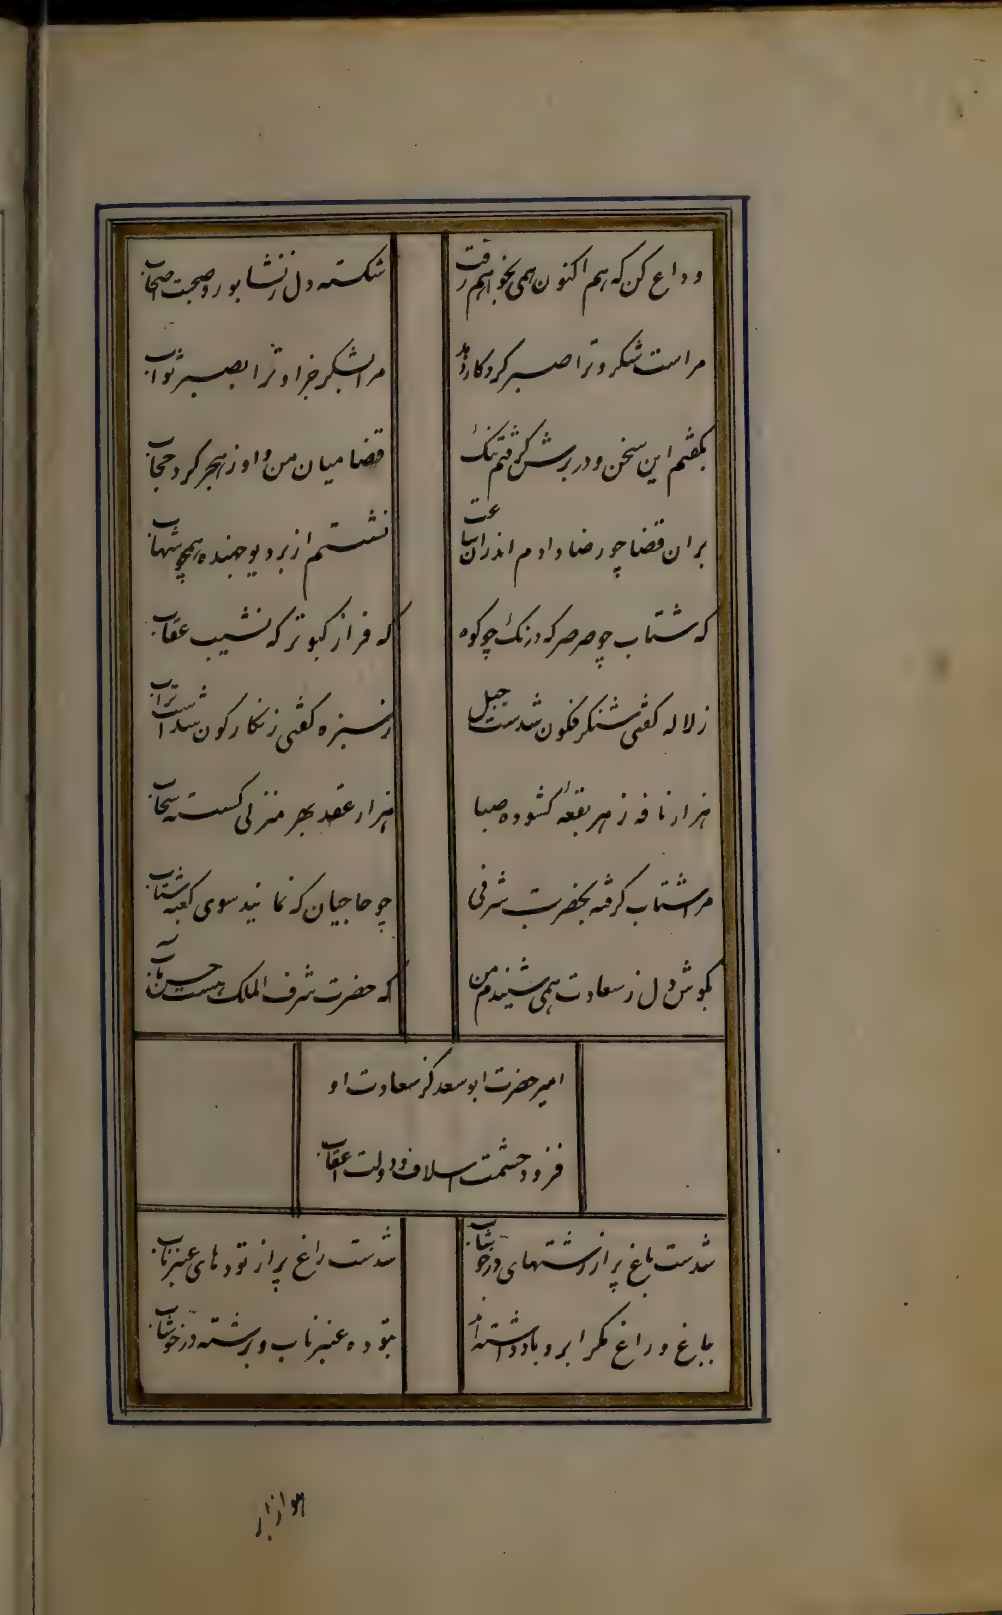 وداع کن که هم اکنون همی بخواهم رفت
شکسته دل ز نشابور و صحبت اصحاب
مراست شکر و ترا صبر کردگار دهد
مرا بشکر جزا و ترا بصبر ثواب
بگفتم این سخن و در برش گرفتم تنگ
قضا میان من و او ز هجر کرد حجاب
بران قضا چو رضا دادم اندران ساعت
نشستم از بر دیو جهنده همچو شهاب
که شتاب چو صرصر که درنگ چو کوه
که فراز کبوتر که نشیب عقاب
ز لاله گفتی شنگرفگون شدست جبل
ز سبزه گفتی زنگارگون شدست تراب
هزار نافه ز هر بقعهٔ گشوده صبا
هزار عقد بهر منزلی گسسته سحاب
مرا شتاب گرفته بحضرت شرفی
چو حاجیان که نمایند سوی کعبه شتاب
بگوش دل ز سعادت همی شنیدم من
که حضرت شرف الملک هست حسن مآب
امیر حضرت ابوسعد کز سعادت او
فزود حشمت اسلاف و دولت اعقاب
شدست باغ پر از رشتهای در خوشاب
شدست راغ پر از تودهای عنبر ناب
بباغ و راغ مگر ابر و باد داشته‌اند
بتوده عنبر ناب و برشته در خوشاب
هوا ز بار